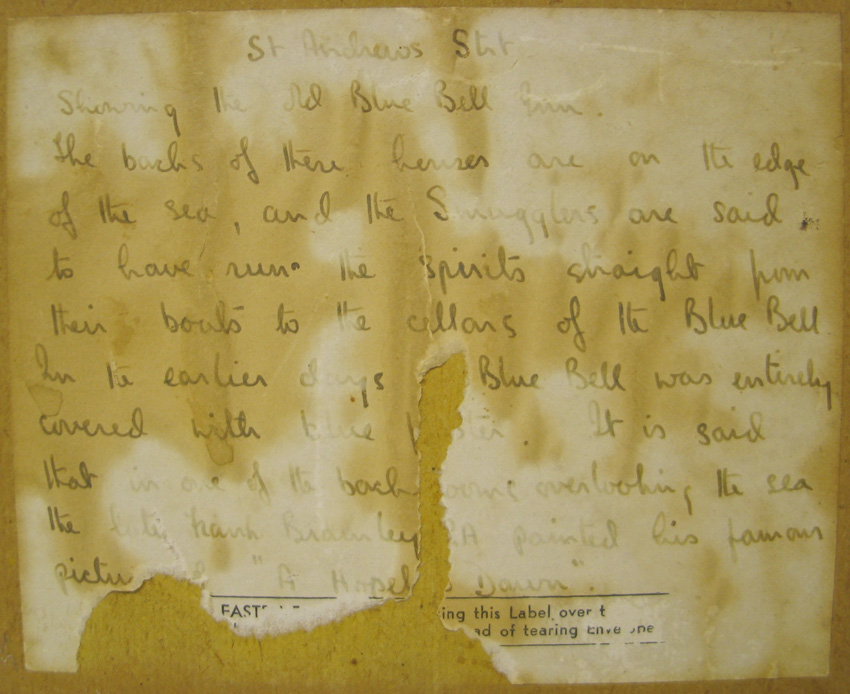 St Andrews Strt
Showing the old Blue Bell Inn.
The backs of these houses are on the edge
of the sea, and the Smugglers are said
to have run the spirits straight from
their boats to the cellars of the Blue Bell
In the earlier days Blue Bell was entirely
covered with blue. It is said
that in one of the back rooms overlooking the sea
the late Frank Bramley RA painted his famous
"A Hopel s Dawn".
ing this Label over t
ad of tearing Enve